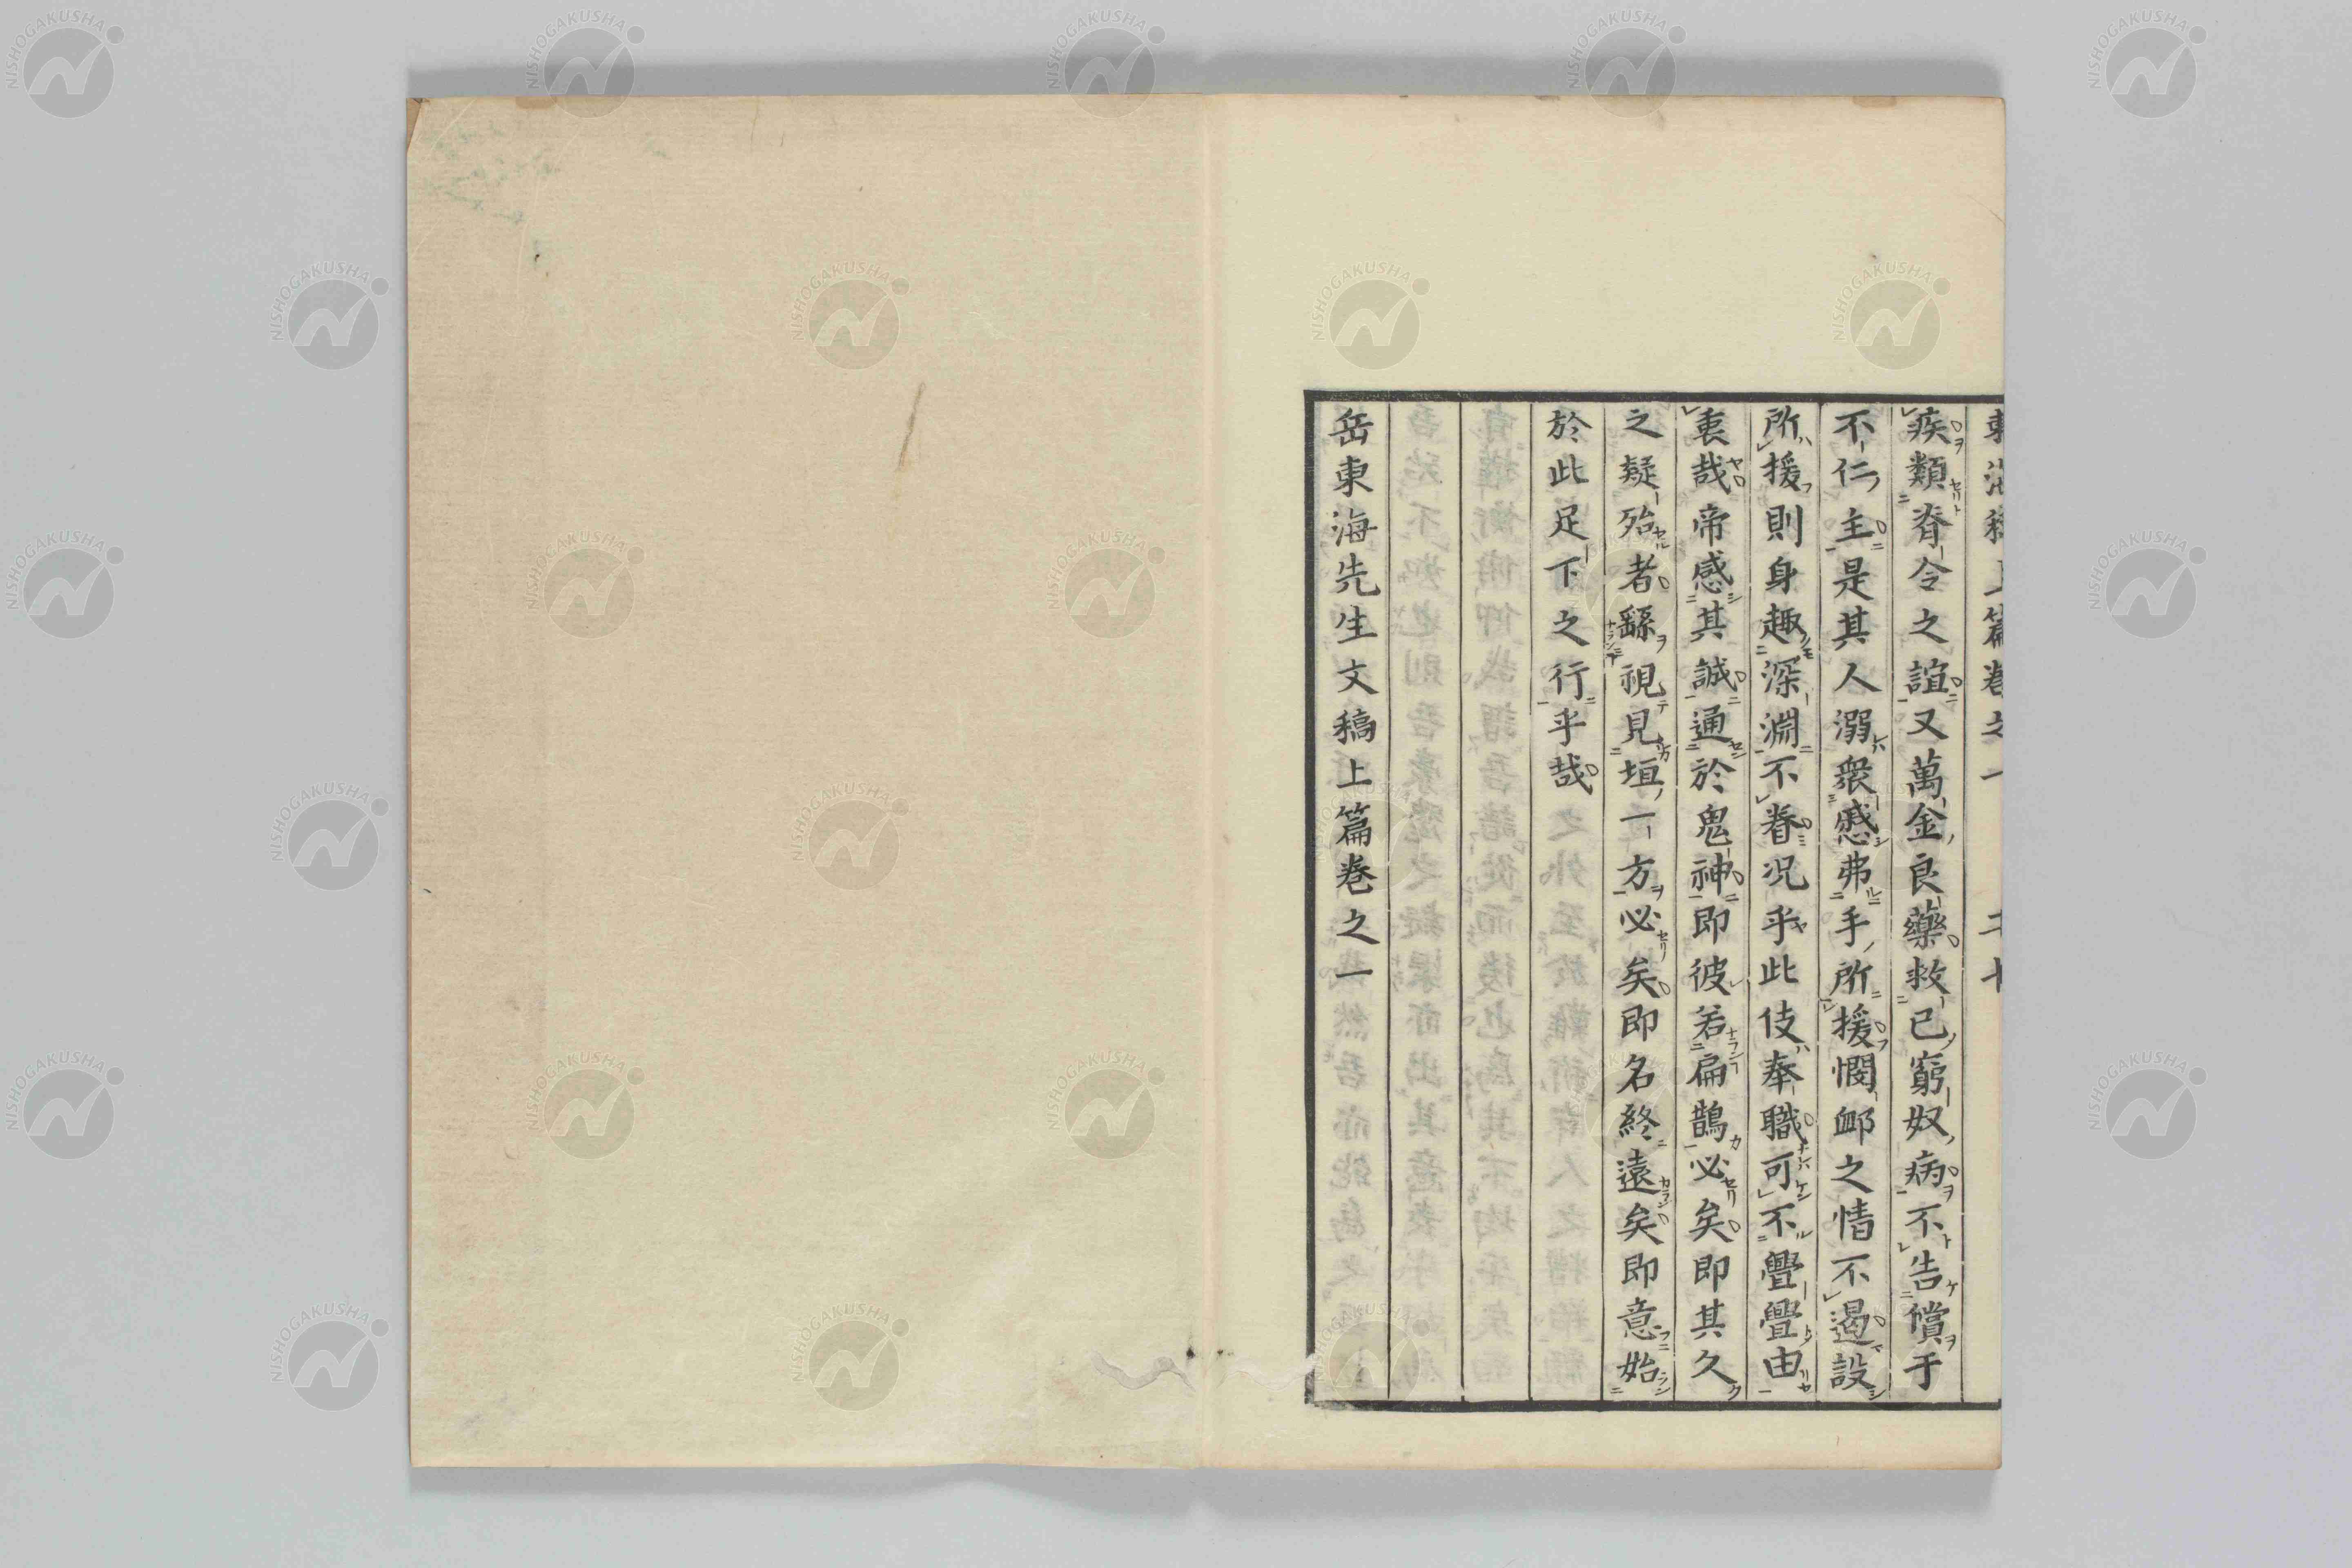 疾類脊令之誼又萬金良藥救已窮奴病不告償于
不仁主是其人溺衆慼弗手所援憫卹之情不遏設
所援則身趣深淵不眷况乎此伎奉職可不亹亹由
衷哉帝感其誠通於鬼神即彼若扁鵲必矣即其久
之疑殆者繇視見垣一方必矣即名終遠矣即意始
於此足下之行乎哉
岳東海先生文稿上篇卷之一
NISHOGAKUSHA